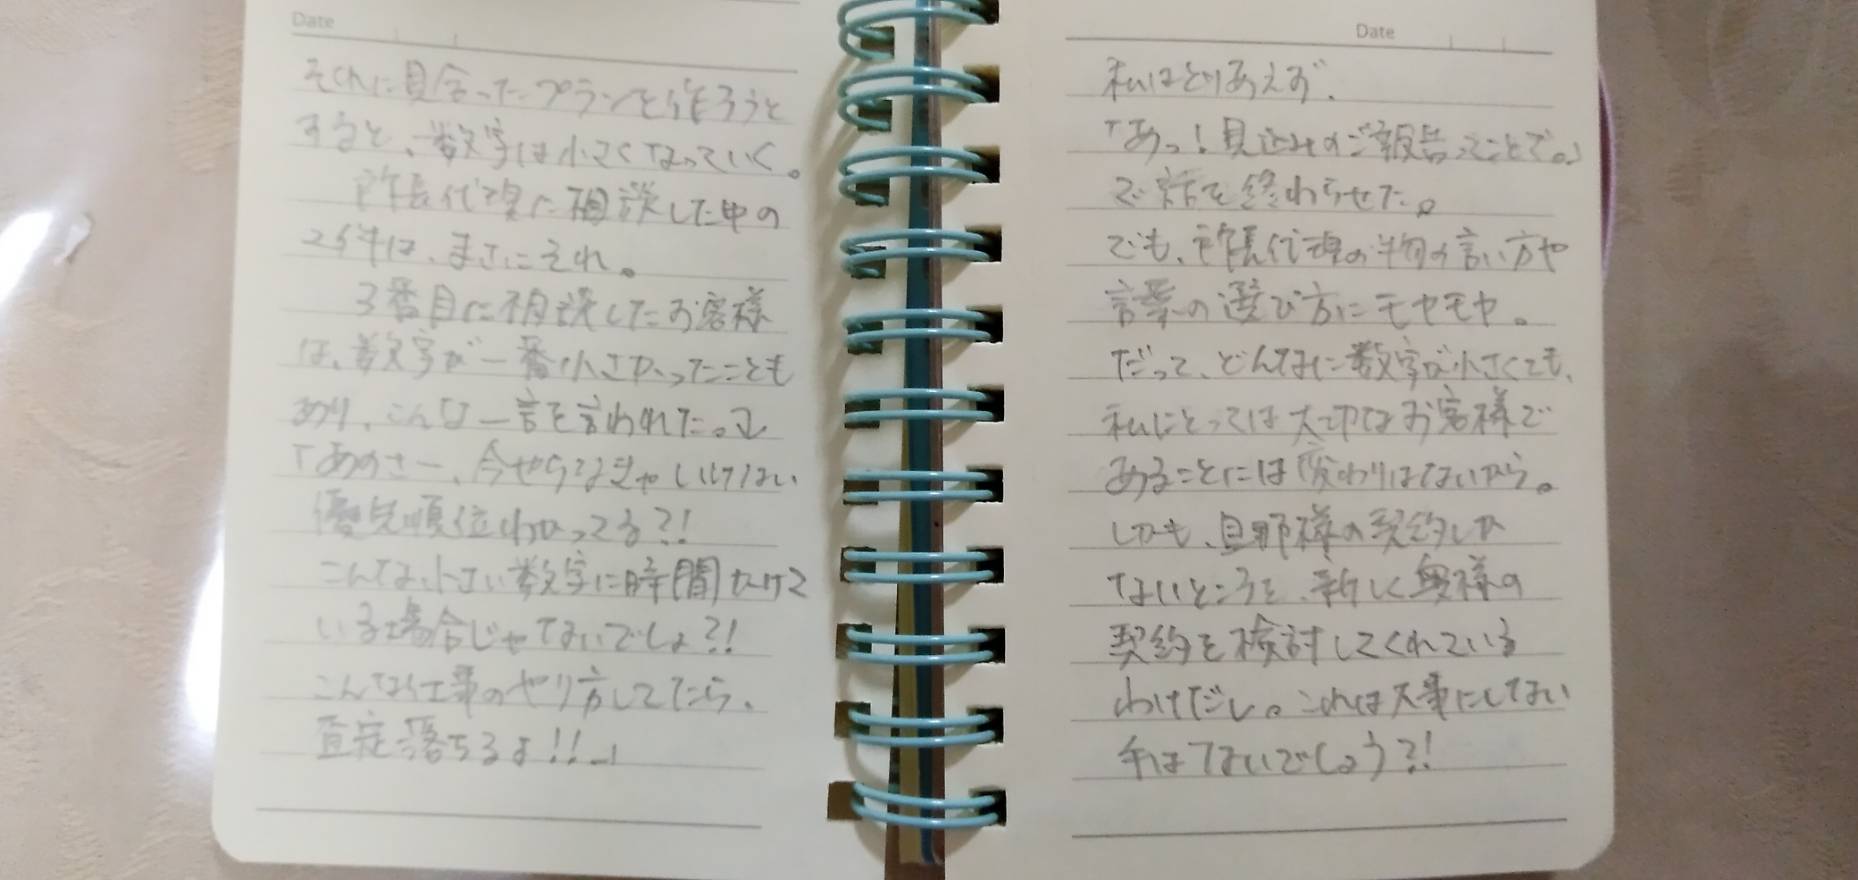 Date
それに見合ったプランを作ろうと
すると、数字は小さくなっていく。
所長代理に相談した中の
2件は、まさにそれ。
3番目に相談したお客様
は、数字が一番小さかったことも
あり、こんな一言を言われた。
「あのさー、今やらなきゃいけない
優先順位わかってる?!
こんな小さい数字に時間かけて
いる場合じゃないでしょ?!
こんな仕事のやり方してたら、
査定落ちるよ!!」
Date
私はとりあえず、
「あっ!見込みのご報告ってことで。」
で話を終わらせた。
でも、所長代理の物の言い方や
言葉の選び方にモヤモヤ。
だって、どんなに数字が小さくても、
私にとっては大切なお客様で
あることには変わりはないから。
しかも、旦那様の契約しか
ないところを、新しく奥様の
契約を検討してくれている
わけだし。これは大事にしない
手はないでしょう?!